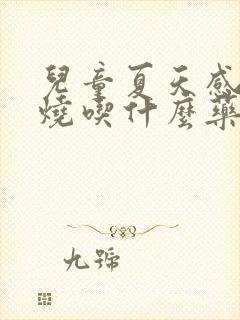 兒童夏天感
燒喫什麼藥
九號